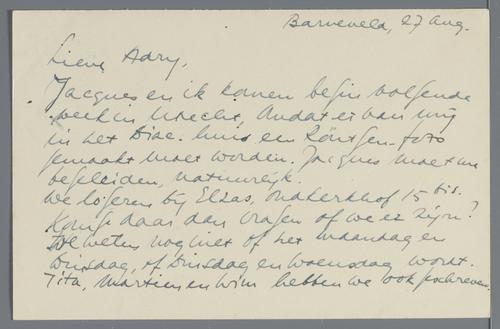 Barneveld, 27 Aug.
Lieve Adry,
Jacques en ik komen begin volgende
week in Utrecht, omdat er van mij
in het Diac. huis een Röntgen-foto
gemaakt moet worden. Jacques moet me
begeleiden, natuurlijk.
We logeren bij Elzas, Ouderkerkhof 15 bis.
Kom je daar dan vragen of we er zijn?
We weten nog niet of het maandag en
Dinsdag, of Dinsdag en Woensdag wordt.
Tita, Martien en Wim hebben we ook geschreven.